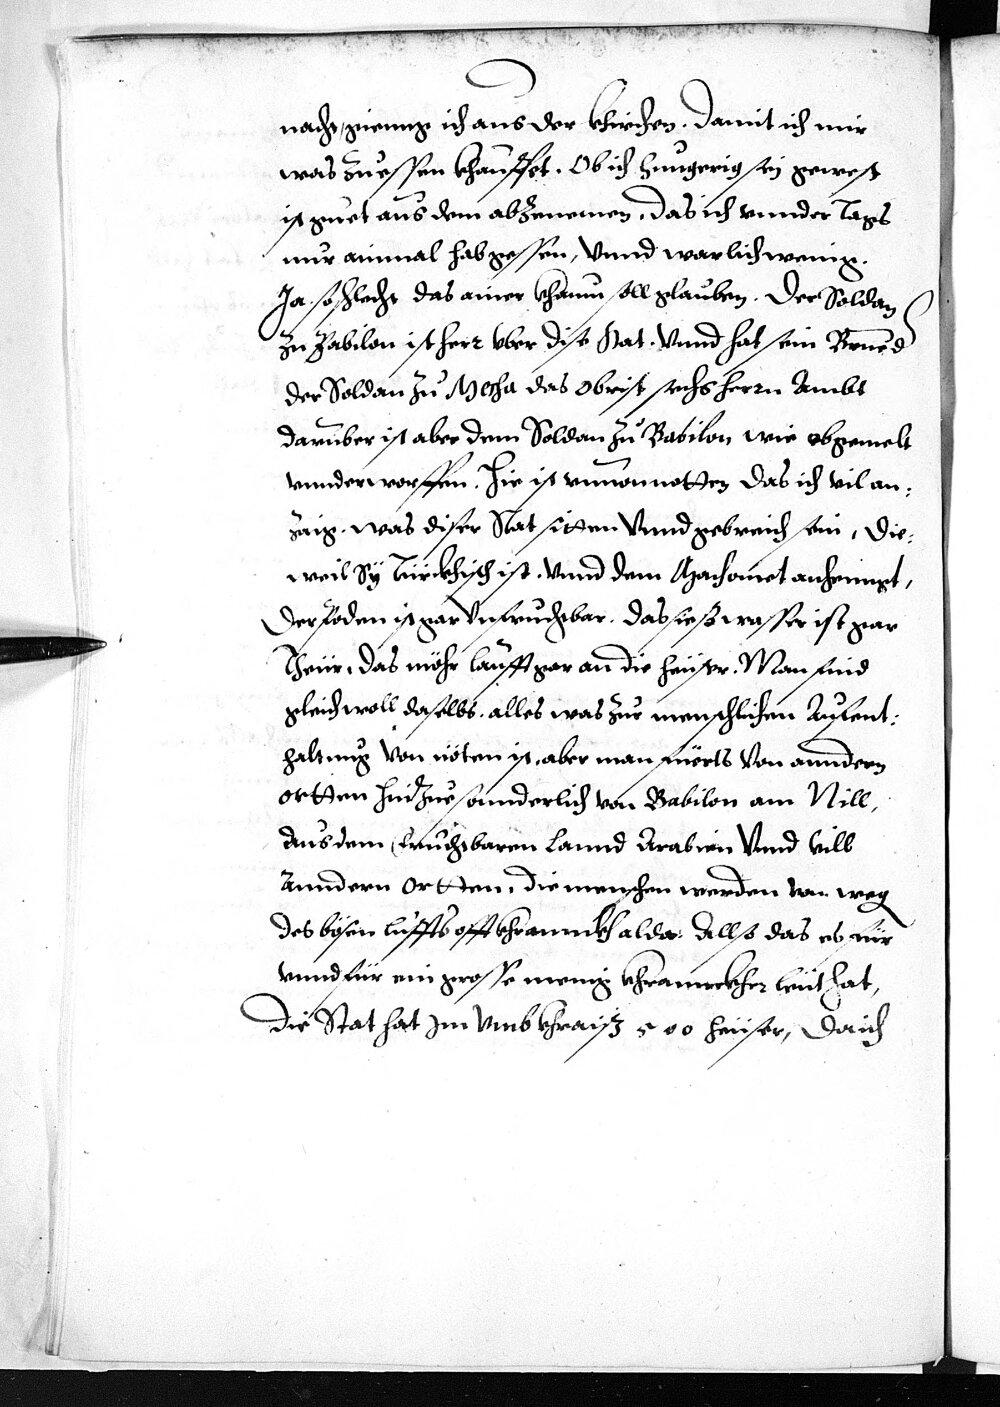 nacht, gienng ich aus der khirchen. Damit ich mir
was zu essen khauffet. Ob ich hungerig sey gewest
ist guet aus dem abzenemen, das ich vnnder Tags
nur ainmal hab gessen, Vnnd warlich wenig.
Ja. so schlecht das ainer khaum soll glauben. Der Soldan
zu Babilon ist herr vber dise Stat. Vnnd hat sein Brued
der Soldan zu Mecha das obrist sechs herrn Ambt
daruber ist aber dem Soldan zu Babilon wie obgemelt
vnnderworffen. Hie ist vnuonnotten das ich vil an:
zaig. was diser Stat sitten Vnnd gebreich sein, Die:
weil Sy Türckhisch ist. Vnnd dem Machomet anhenngt,
Der Boden ist gar Vnfruchtbar. das sieß wasser ist gar
Theür, das möhr laufft gar an die heüser. Man find
gleichwoll daselbs. alles was zur menschlichen Aufent:
haltung Von nöten ist, aber man fuerts Von anndern
ortten hinzue sonnderlich von Babilon am Nill,
Aus dem fruchtbaren Lannd Arabien Vnnd vill
Anndern Ortten, die menschen werden von weg
des bösen luffts offt khrannckh alda: Allso das es für
vnnd für ein grosse menig khrannckher leüt hat,
Die Stat hat Im Vmbkhraiß 500 heüser, Da ich